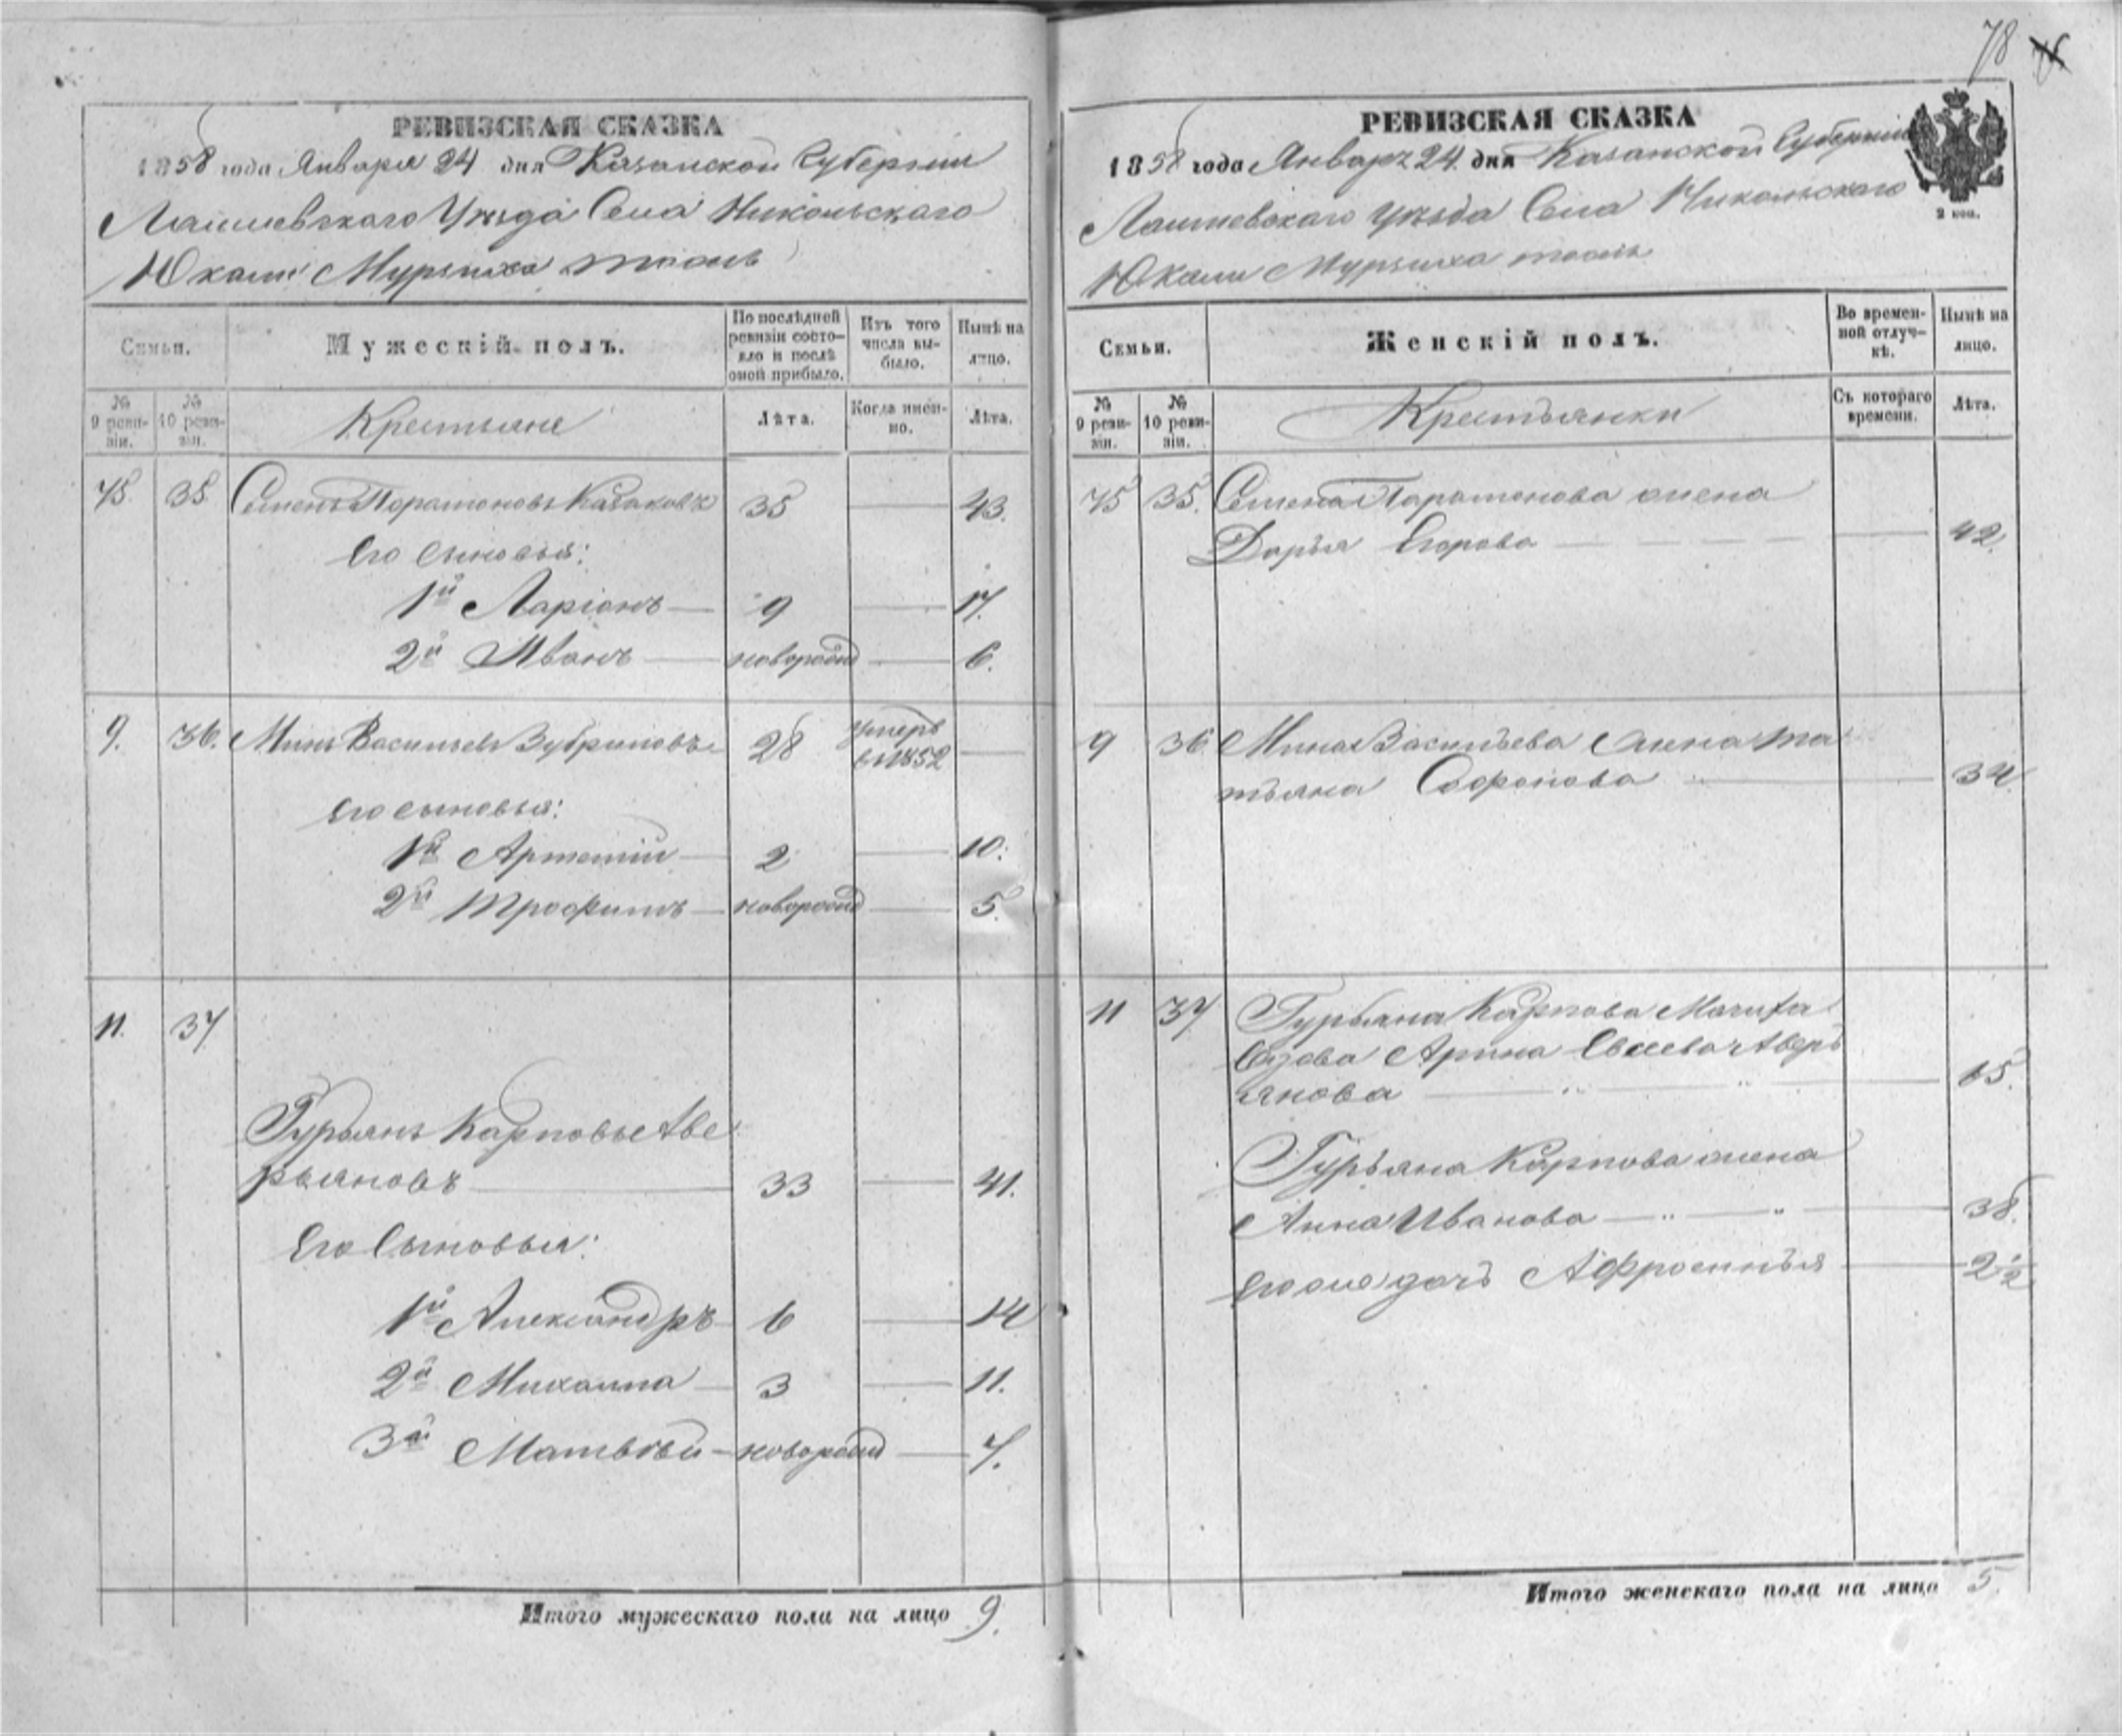 78
РЕВИЗСКАЯ СКАЗКА
1858 года Января 24 дня Казанской Губерніи
Лаишевскаго Уѣзда Села Никольскаго
Юкали Мурзиха тожъ
Семьи.
Мужескій полъ.
По послѣдней ревизіи состояло и послѣ оной прибыло.
Изъ того числа выбыло.
Нынѣ на лицо.
№ 9 ревизіи.
№ 10 ревизіи.
Крестьяне
Лѣта.
Когда именно.
Лѣта.
75. 35 Семенъ Парамоновъ Казаковъ 35 — 43.
Его сыновья:
1й Ларіонъ — 9 — 17.
2й Иванъ — новорожд — 6.
9. 36. Минъ Васильевъ Зубриновъ 28 умеръ в 1852 —
Его сыновья:
1й Артемій — 2 — 10.
2й Трофимъ — новорожд — 5.
11. 37
Гурьянъ Карповъ Аве
рьяновъ — 33 — 41.
Его Сыновья:
1й Александръ 6 — 14
2й Михаила — 3 — 11.
3й Матвѣй — новорожд — 7.
Итого мужескаго пола на лицо 9.
РЕВИЗСКАЯ СКАЗКА
2 коп.
1858 года Январь 24. дня Казанской Губерніи
Лаишевскаго Уѣзда Села Никольскаго
Юкали Мурзиха тожъ
Семьи.
Женскій полъ.
Во временной отлучкѣ.
Нынѣ на лицо.
№ 9 ревизіи.
№ 10 ревизіи.
Крестьянки
Съ котораго времени.
Лѣта.
75 35. Семена Парамонова жена
Дарья Егорова — 42.
9 36. Мина Васильева жена Та
тьяна Софронова — 34.
11 37 Гурьяна Карпова Мачиха
вдова Арина Авер
янова — 65.
Гурьяна Карпова жена
Анна Иванова — 38.
Его же дочь Афросинья — 2 1/2
Итого женскаго пола на лицо 5.